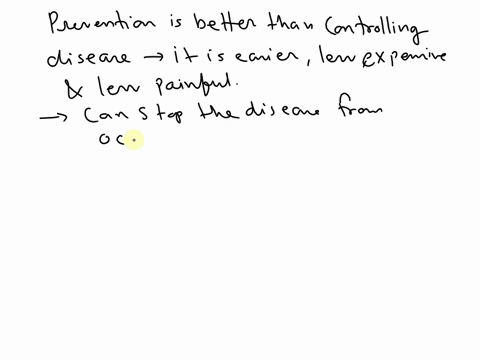 Prevention is better than controlling
disease → it is easier, less expensive
& less painful.
→ Can stop the disease from
oc